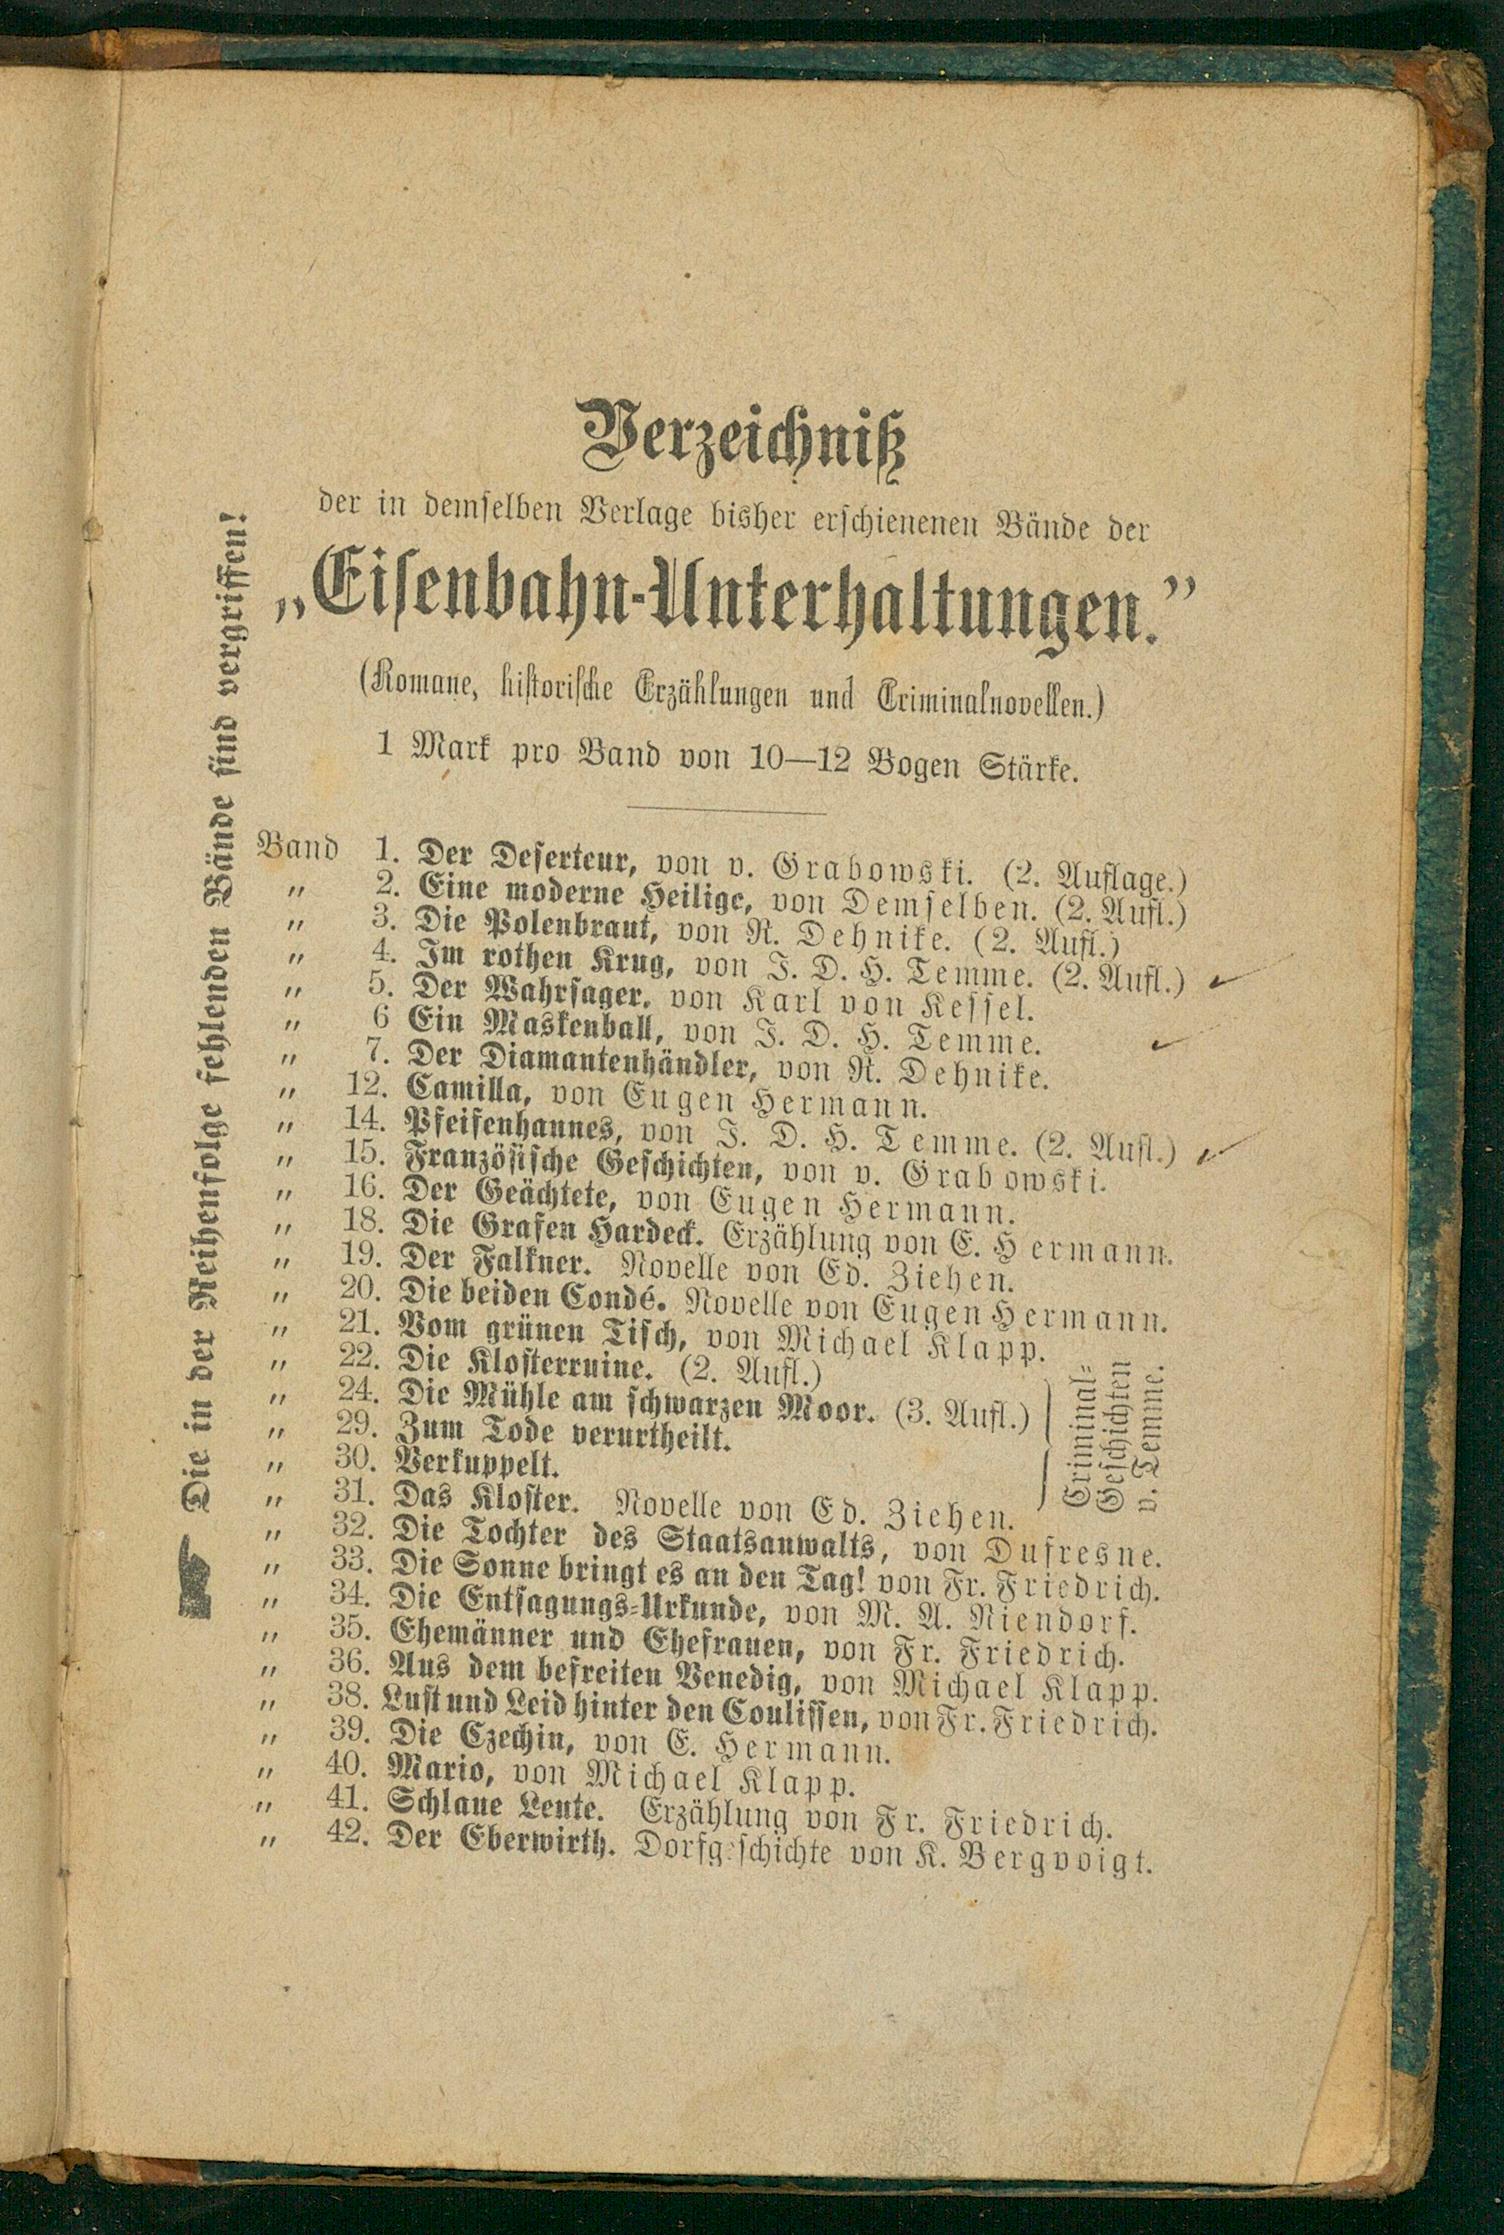 Verzeichniß
der in demselben Verlage bisher erschienenen Bände der
„Eisenbahn-Unterhaltungen.”
(Romane, historische Erzählungen und Criminalnovellen.)
1 Mark pro Band von 10—12 Bogen Stärke.
Band 1. Der Deserteur, von v. Grabowski. (2. Auflage.)
„ 2. Eine moderne Heilige, von Demselben. (2. Aufl.)
„ 3. Die Polenbraut, von R. Dehnike. (2. Aufl.)
„ 4. Im rothen Krug, von J. D. H. Temme. (2. Aufl.) ✓
„ 5. Der Wahrsager, von Karl von Kessel.
„ 6 Ein Maskenball, von J. D. H. Temme. ✓
„ 7. Der Diamantenhändler, von R. Dehnike.
„ 12. Camilla, von Eugen Hermann.
„ 14. Pfeifenhannes, von J. D. H. Temme. (2. Aufl.) ✓
„ 15. Französische Geschichten, von v. Grabowski.
„ 16. Der Geächtete, von Eugen Hermann.
„ 18. Die Grafen Hardeck. Erzählung von E. Hermann.
„ 19. Der Falkner. Novelle von Ed. Ziehen.
„ 20. Die beiden Condé. Novelle von Eugen Hermann.
„ 21. Vom grünen Tisch, von Michael Klapp.
„ 22. Die Klosterruine. (2. Aufl.)
„ 24. Die Mühle am schwarzen Moor. (3. Aufl.)
„ 29. Zum Tode verurtheilt.
„ 30. Verkuppelt.
Criminal-
Geschichten
v. Temme.
„ 31. Das Kloster. Novelle von Ed. Ziehen.
„ 32. Die Tochter des Staatsanwalts, von Dufresne.
„ 33. Die Sonne bringt es an den Tag! von Fr. Friedrich.
„ 34. Die Entsagungs-Urkunde, von M. A. Niendorf.
„ 35. Ehemänner und Ehefrauen, von Fr. Friedrich.
„ 36. Aus dem befreiten Venedig, von Michael Klapp.
„ 38. Lust und Leid hinter den Coulissen, von Fr. Friedrich.
„ 39. Die Czechin, von E. Hermann.
„ 40. Mario, von Michael Klapp.
„ 41. Schlaue Leute. Erzählung von Fr. Friedrich.
„ 42. Der Eberwirth. Dorfgeschichte von K. Bergvoigt.
☛ Die in der Reihenfolge fehlenden Bände sind vergriffen!